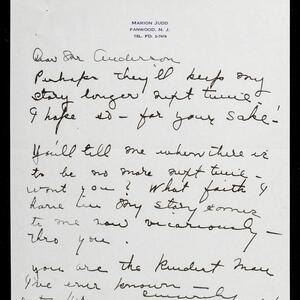 MARION JUDD
FANWOOD, N. J.
TEL. FD. 2-7678
Dear Mr Anderson
Perhaps they'll keep my
story longer next time
I hope so - for your sake!
You'll tell me when there is
to be no more next time -
wont you? What faith I
have in my story comes
to me now vicariously -
thro you.
you are the kindest man
I've ever known -
Sincerely